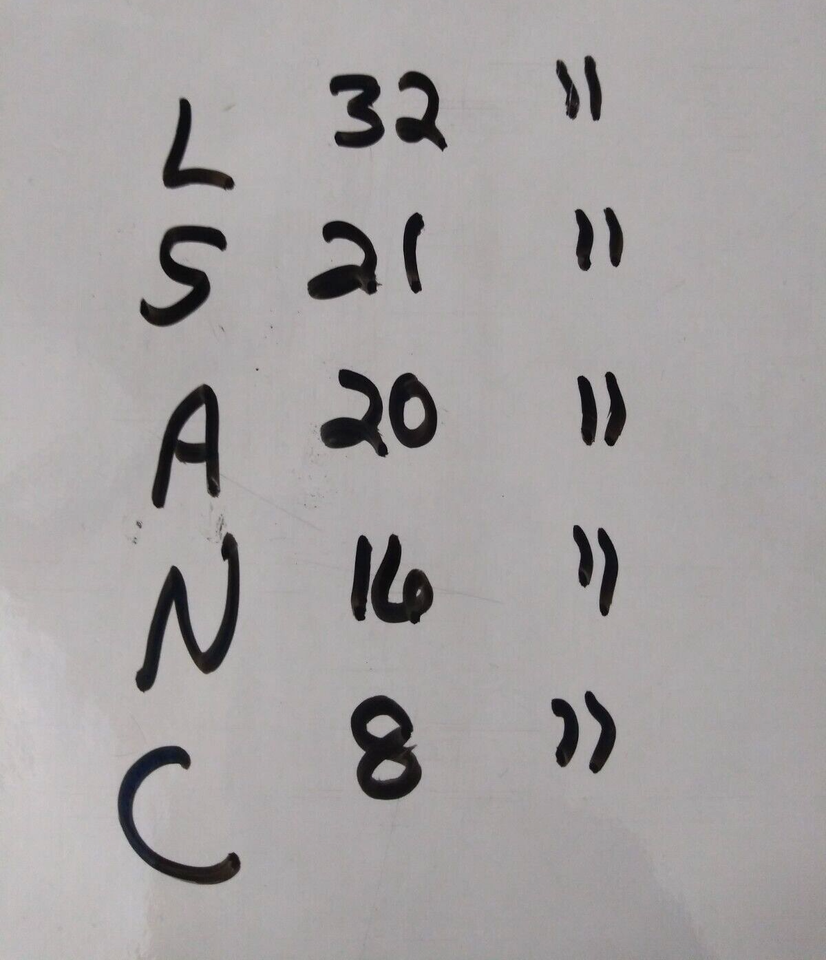 L 32 "
S 21 "
A 20 "
N 16 "
C 8 "